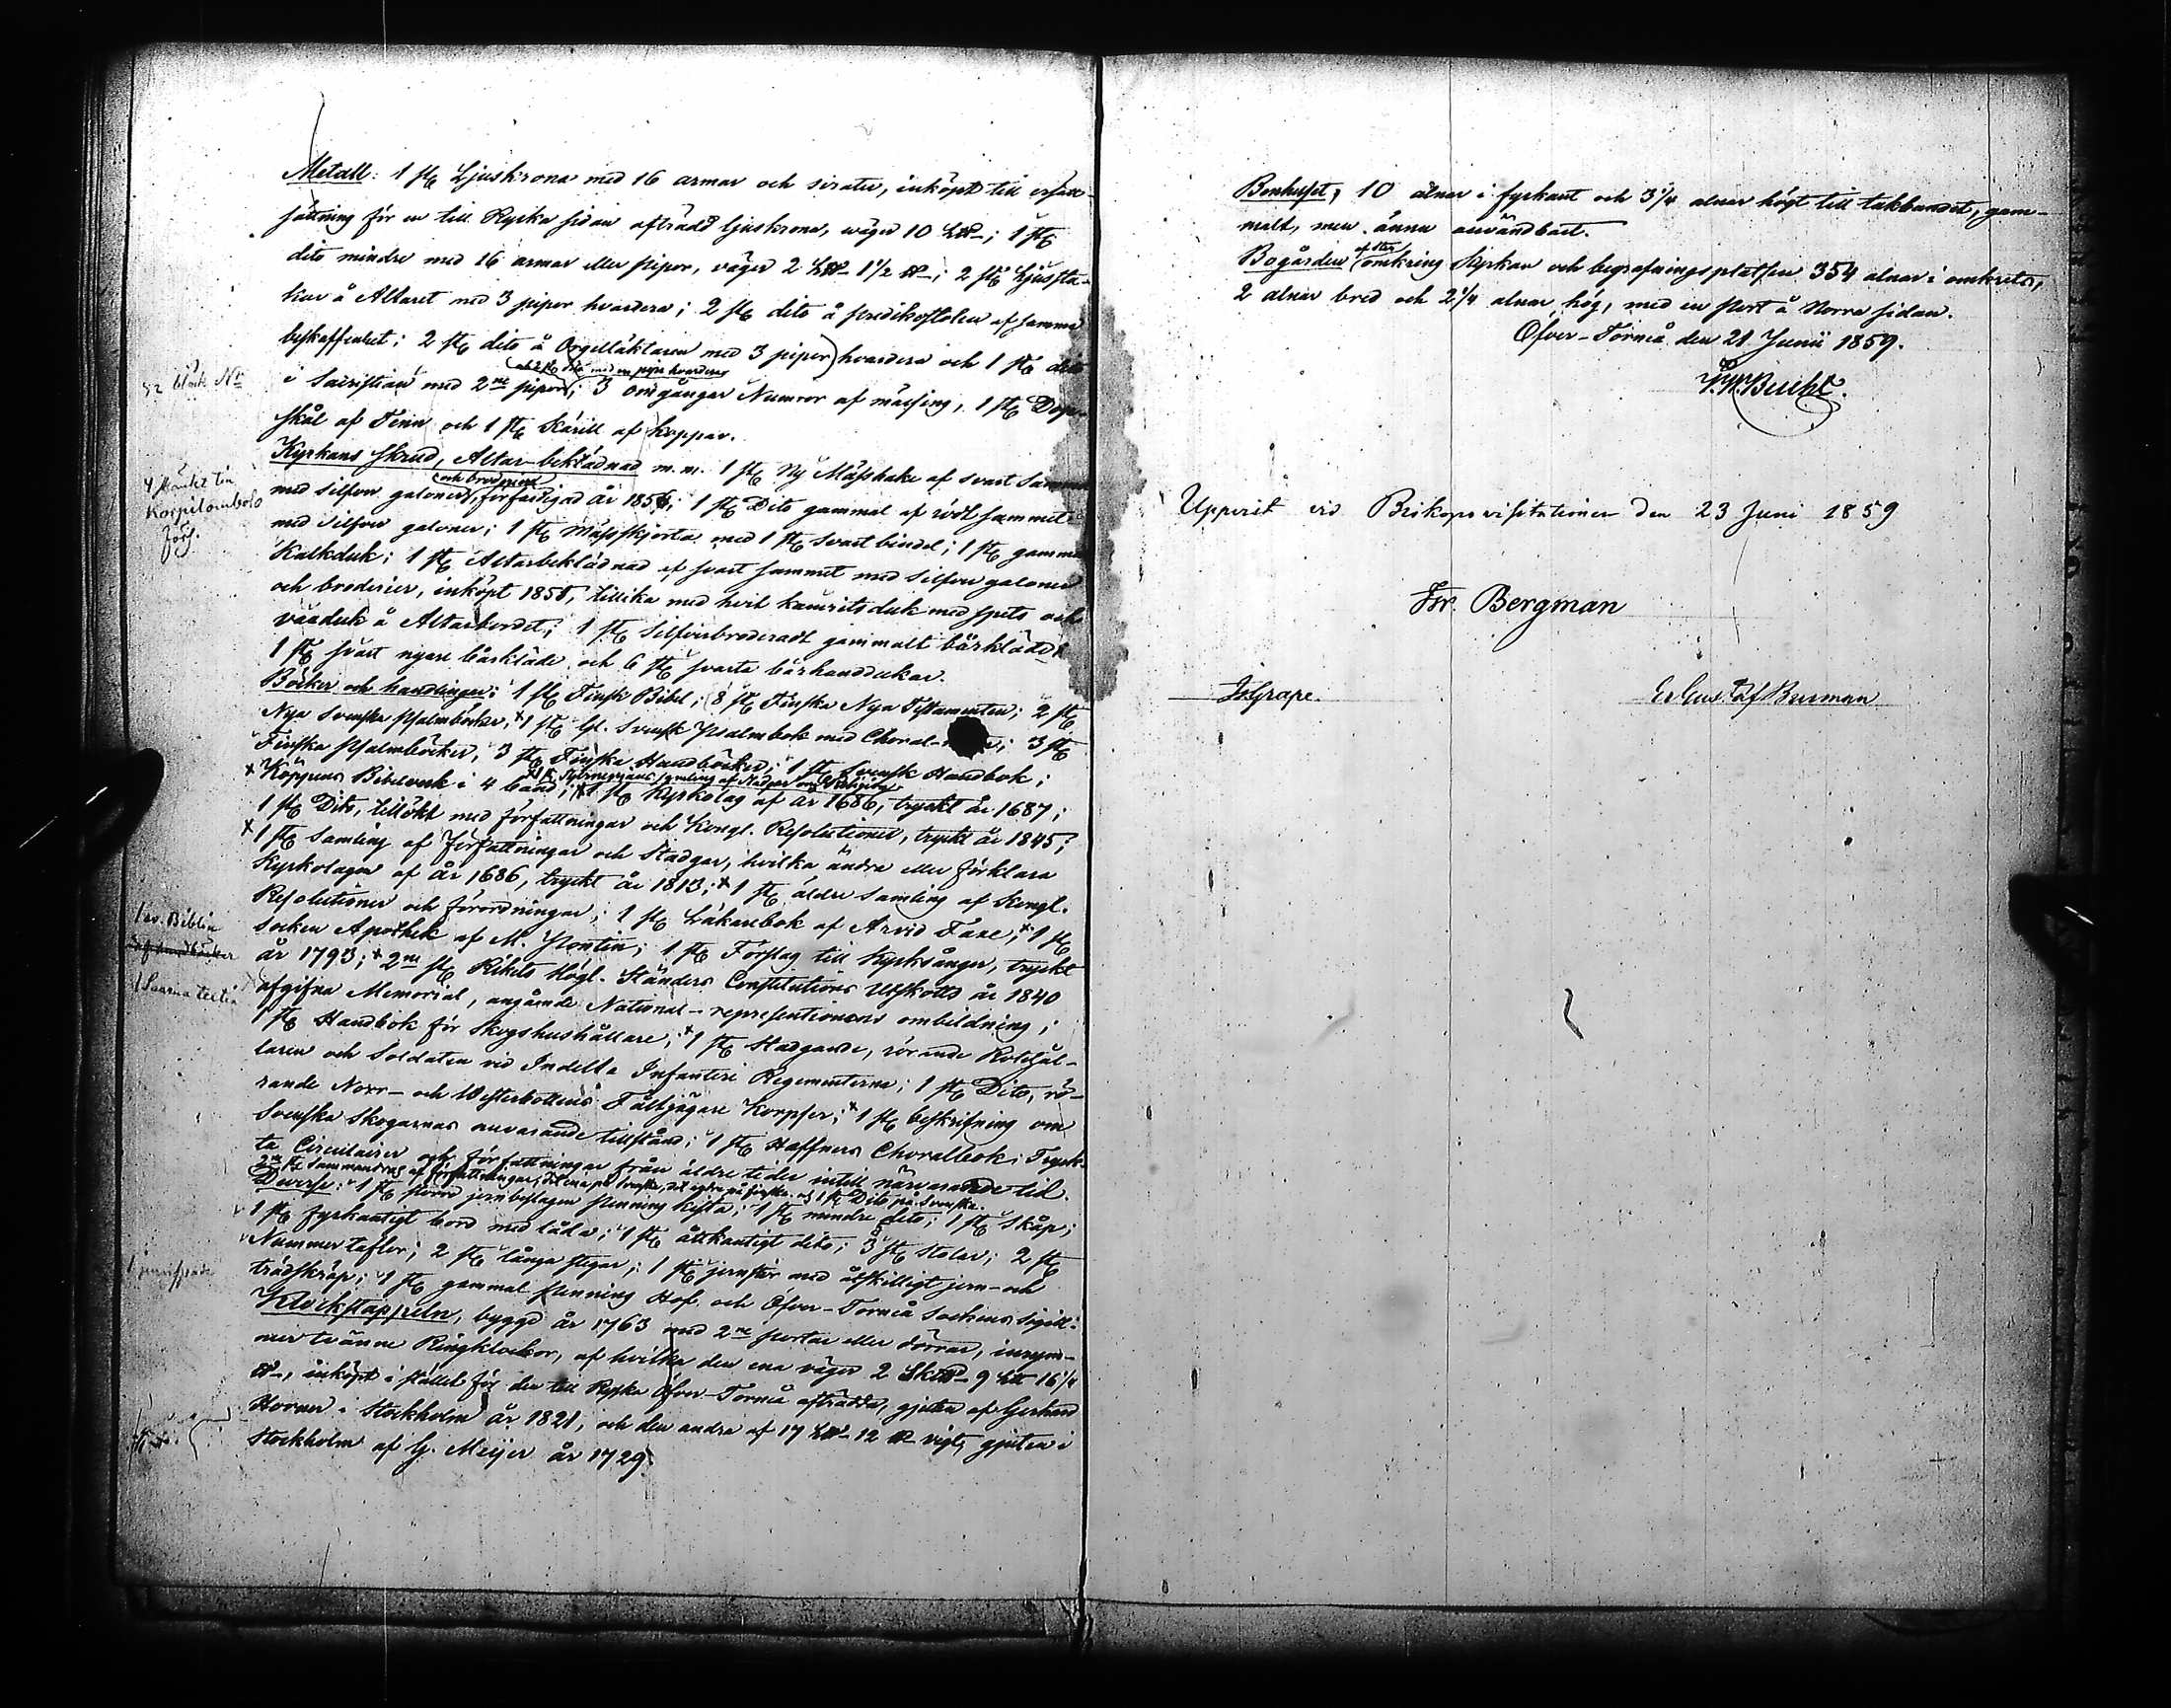 Metall: 1 st. Ljuskrona med 16 armar och sirater, inköpt till ersätt-
sättning för en till Ryska sidan afträdd ljuskrona, väger 10 L℔; 1 st.
dito mindre med 16 armar eller pipor, väger 2 L℔ 1 1/2 ℔; 2 st. Ljussta-
kar å Altaret med 3 pipor hvardera; 2 st. dito å predikstolen af samma
beskaffenhet; 2 st. dito å Orgelläktaren med 3 pipor hvardera och 1 st. dito
och 2 st. dito med en pipa hvardera
i Sacristian med 2ne pipor; 3 omgångar Numror af mässing, 1 st. Dop-
skål af Tenn och 1 st. Kärill af koppar.
Kyrkans skrud, Altar-beklädnad m.m. 1 st. Ny Mässhake af svart Sammet
och broderier
med silfver galoner, förfärdigad år 1856; 1 st. Dito gammal af rödt sammet
med silfver galoner; 1 st. Mässskjorta med 1 st. svart bindel; 1 st. gammal
Kalkduk; 1 st. Altarbeklädnad af svart sammet med silfver galoner
och broderier, inköpt 1858, tillika med hvit kamritsduk med spets och
vaxduk å Altarbordet; 1 st. silfverbroderadt gammalt bårkläde;
1 st. svart nyare bårkläde och 6 st. svarta bårhanddukar.
Böcker och handlingar: 1 st. Finsk Bibel; 8 st. Finska Nya Testamenten; 2 st.
Nya Svenska psalmböcker, 1 st. Gl. Svensk Psalmbok med Choral-; 3 st.
Finska psalmböcker, 3 st. Finska Handböcker; 1 st. Svensk Handbok;
Köppens Bibelverk i 4 band; 1 st. Kyrkolag af år 1686, tryckt år 1687;
1 st. Dito, tillökt med författningar och Kongl. Resolutioner, tryckt år 1845;
1 st. Samling af författningar och Stadgar, hvilka ändra eller förklara
Kyrkolagen af år 1686, tryckt år 1813; 1 st. äldre samling af Kongl.
Resolutioner och förordningar; 1 st. Läkarebok af Arvid Faxe; 1 st.
Socken Apothek af M. Pontin; 1 st. Förslag till Kyrksånger, tryckt
år 1793; 2ne st. Rikets Högl. Ständers Constitutions Utskotts år 1840
afgifna Memorial, angående National-representationens ombildning;
1 st. Handbok för Skogshushållare; 1 st. Stadgande, rörande Rotehål-
laren och Soldaten vid Indelta Infanteri Regementerna; 1 st. Dito, rö-
rande Norr- och Westerbottens Fältjägare Korpser; 1 st. beskrifning om
Svenska Skogarnas nuvarande tillstånd; 1 st. Hæffners Choralbok; Tryck-
ta Circulairer och författningar från äldre tider intill närvarande tid.
2ne st. Sammandrag af författningar, det ena på svenska, det andra på finska. och 1 st. Dito på Svenska.
Diverse: 1 st. större jernbeslagen penning kista; 1 st. mindre dito; 1 st. skåp;
1 st. fyrkantigt bord med låda; 1 st. åttkantigt dito; 3 st. stolar; 2 st.
Nummertaflor; 2 st. långa stegar; 1 st. jernstör med åtskilligt jern- och
trädskräp; 1 st. gammal penning Hof. och Öfver-Torneå Sockens sigill.
Klockstappeln, byggd år 1763 med 2ne portar eller dörrar, inrym-
mer tvänne Ringklockor, af hvilka den ena väger 2 Sk℔ 9 L℔ 16 1/4
℔, inköpt i stället för den till Ryska Öfver-Torneå afträdda, gjuten af Gerhard
Horner i Stockholm år 1821, och den andra af 17 L℔ 12 ℔ vigt, gjuten i
Stockholm af G. Meijer år 1729.
Korpilombolo
förs.
1 sv. Biblia
Benhuset, 10 alnar i fyrkant och 3 1/4 alnar högt till takbandet, gam-
malt, men ännu användbart.
Bogården omkring Kyrkan och begrafningsplatsen 354 alnar i omkrets,
2 alnar bred och 2 1/4 alnar hög, med en port å Norra sidan.
Öfver-Torneå den 21 Junii 1859.
Uppvist vid Biskopsvisitationen den 23 Juni 1859
Isr. Bergman
Is. Grape.
af Burman